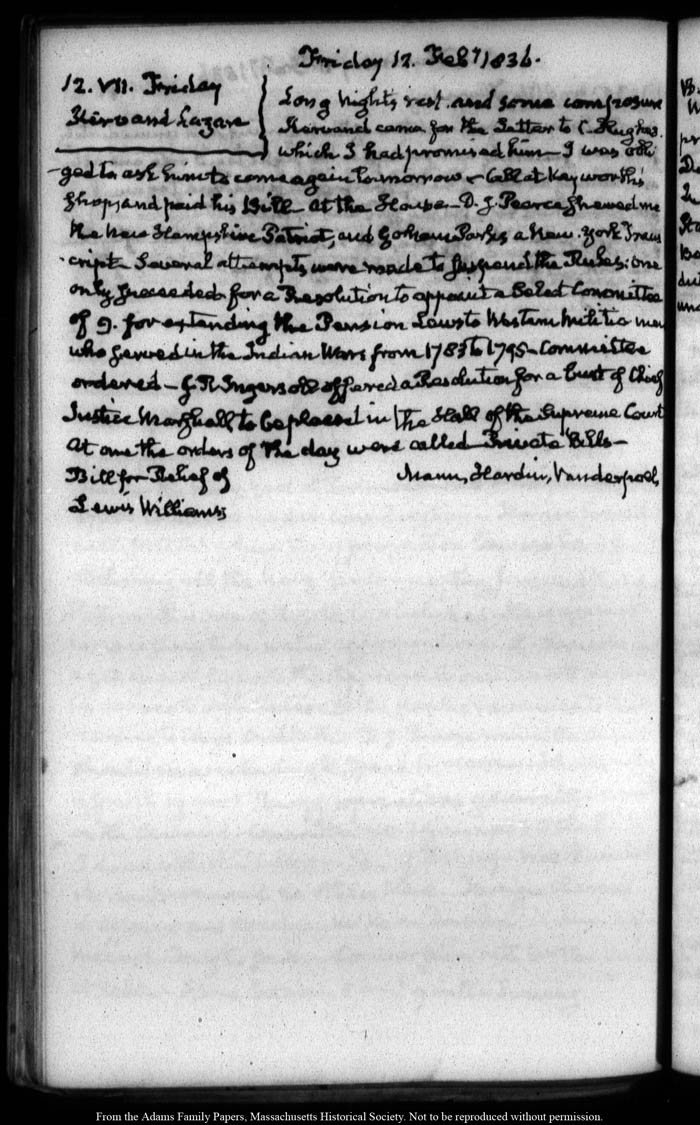 Friday 12. Feby 1836.
12. VII. Friday
Kervand Lazare
Long night's rest and some composure
Kervand came for the Letter to C. Hughes.
which I had promised him I was obli
ged to ask him to come again to-morrow - Call at Kayworth's
Shop, and paid his Bill. At the House - D. J. Pearce shewed me
the New Hampshire Patriot, and Gorham Parks a New-York Trans
cript. Several attempts were made to suspend the Rules: one
only succeeded for a Resolution to appoint a Select Committee
of 9. for extending the Pension Laws to Western militia men
who served in the Indian Wars from 1783 to 1795 - Committee
ordered - J. R. Ingersoll offered a Resolution for a bust of Chief
Justice Marshall to be placed in the Hall of the Supreme Court
At one the orders of the day were called Private Bills -
Bill for Relief of Mann, Hardin, Vanderpoel,
Lewis Williams;
From the Adams Family Papers, Massachusetts Historical Society. Not to be reproduced without permission.